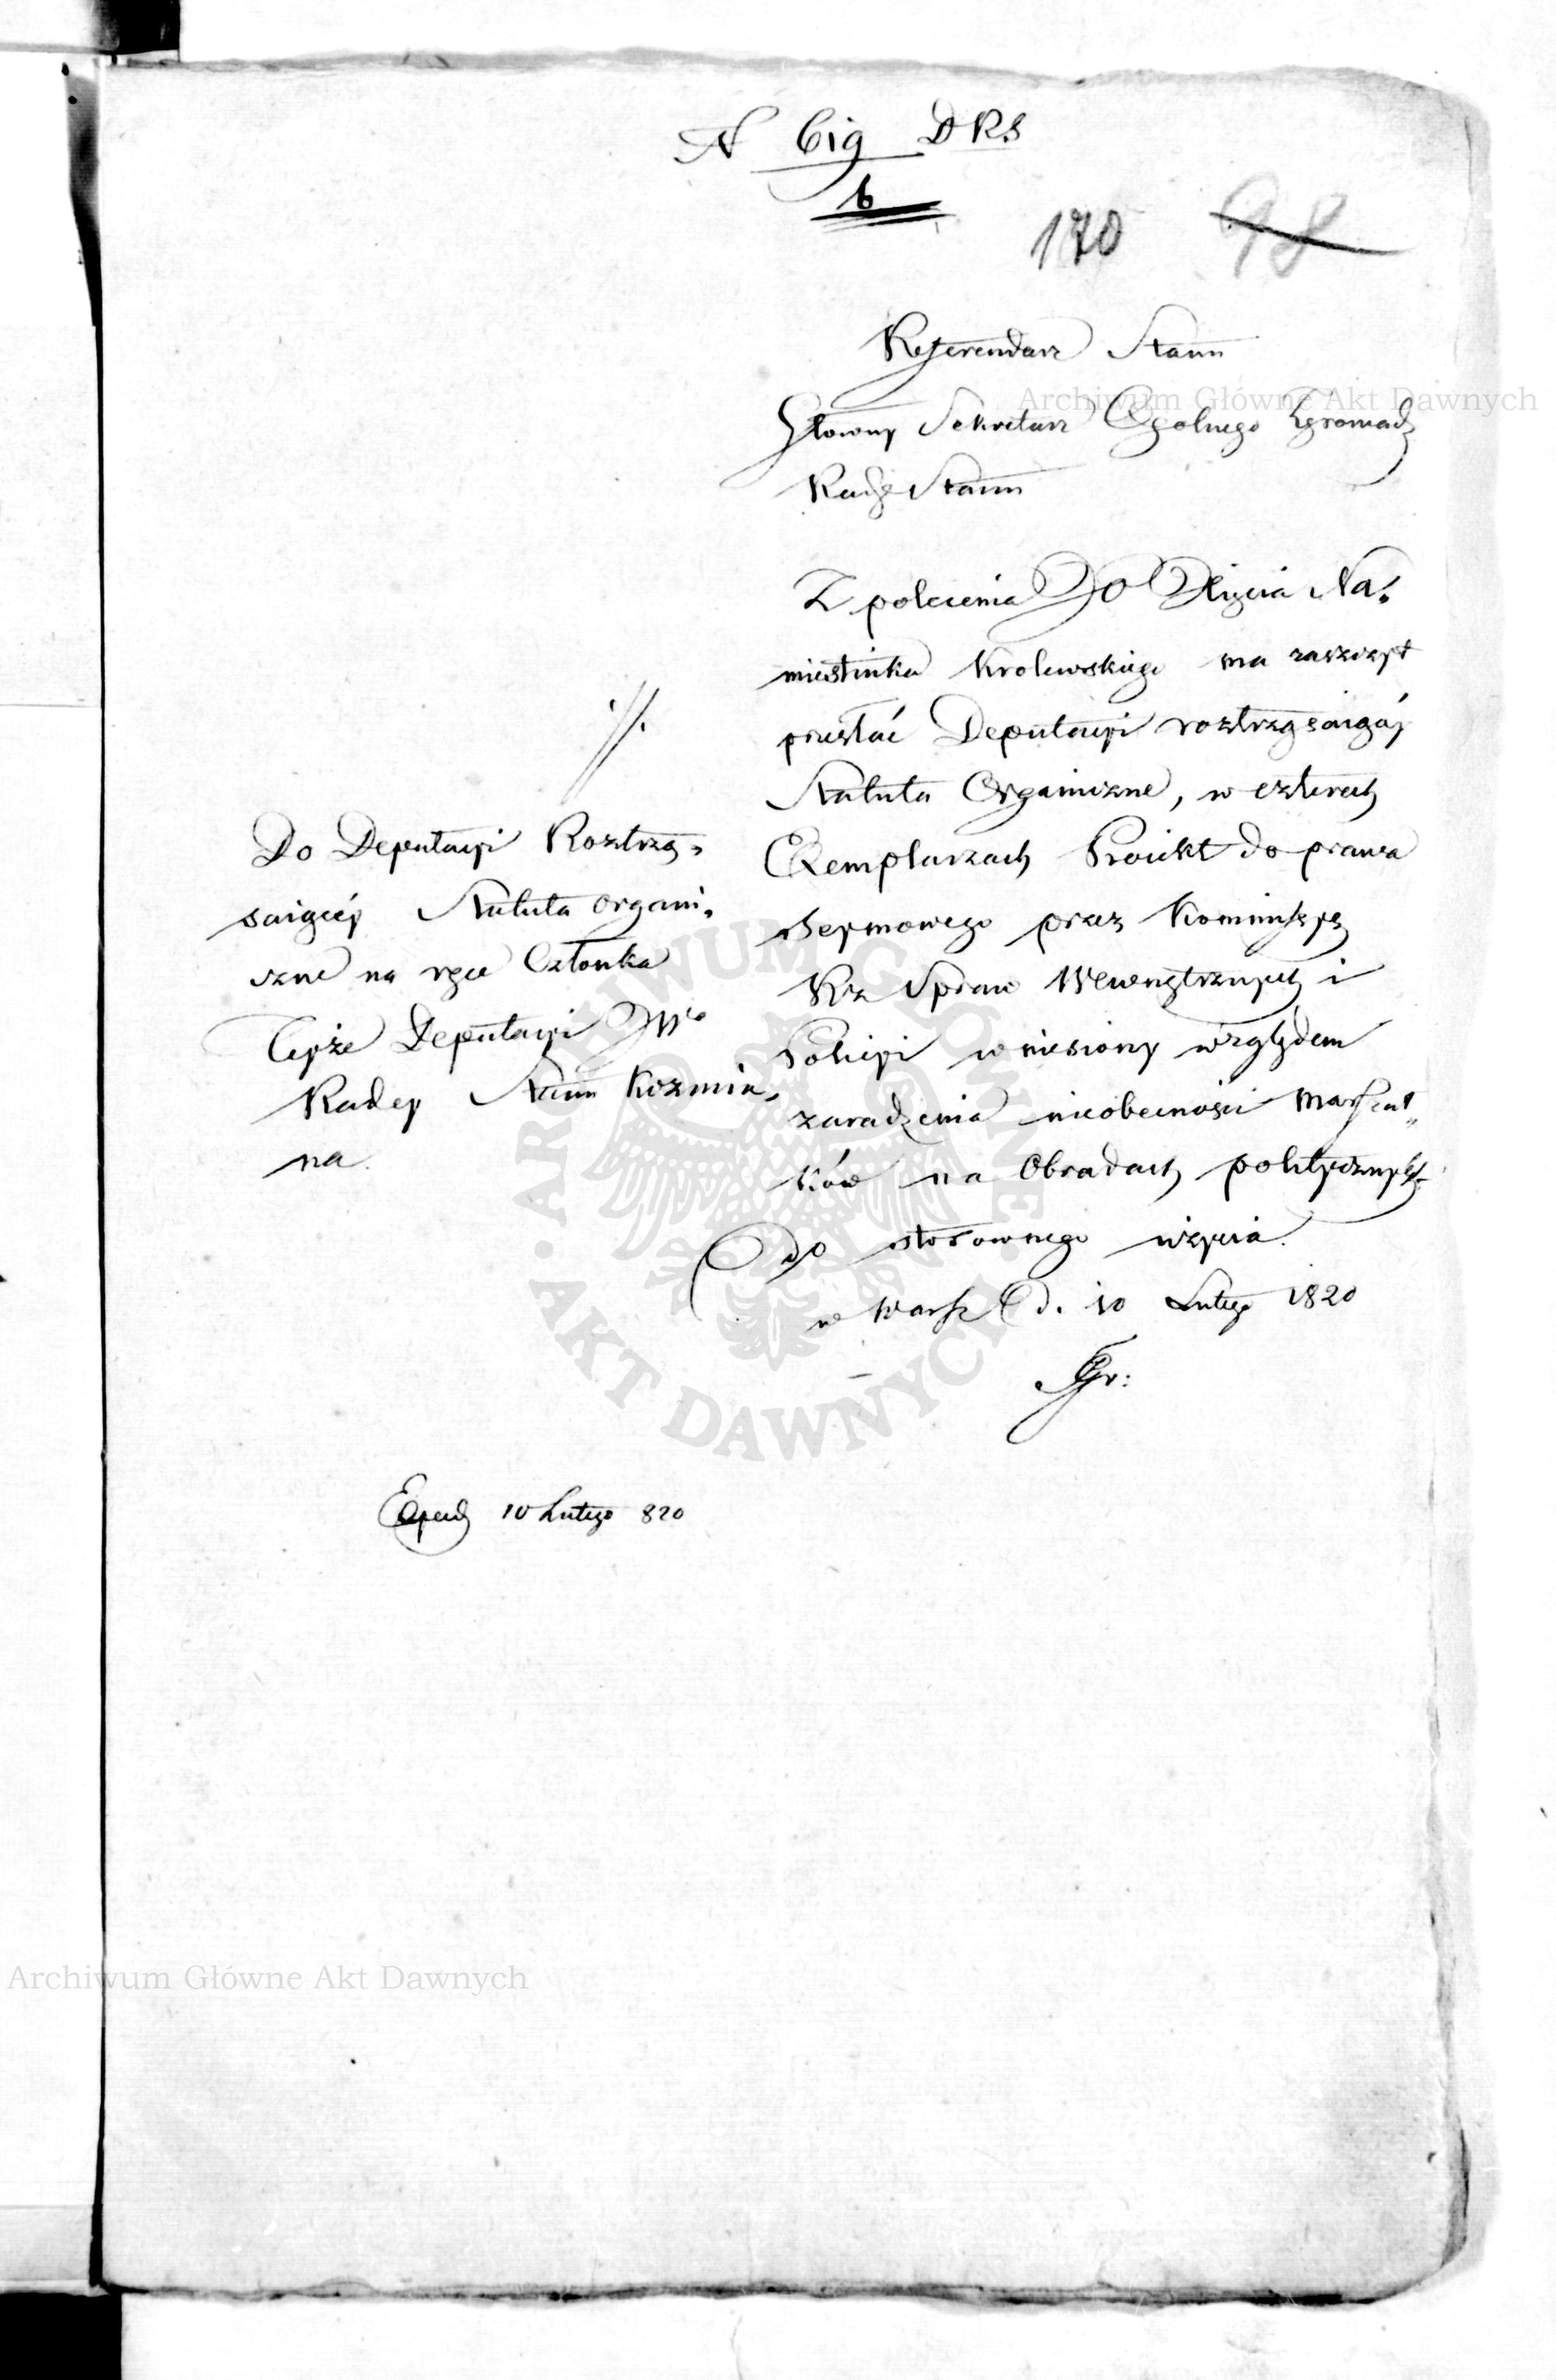 N 619 DRS
6
170 98
Referendarz Stanu
Główny Sekretarz Ogolnego Zgromadz
Rady Stanu
Z polecenia JO Xięcia Na:
miestnika Krolewskiego ma zaszczyt
przesłać Deputacyi roztrząsaiącéy
Statuta Organiczne, w czterech
Exemplarzach Proiekt do prawa
Seymowego przez Kommissyą
Rz Spraw Wewnętrznych i
Policyi wniesiony względem
zaradzenia nieobecności Marszał„
ków na Obradach politycznych
do stosownego użycia.
w Warsz d. 10 Lutego 1820
Do Deputacyi Roztrzą„
saiącéy Statuta organi„
czne na ręce Członka
Teyże Deputacyi JW°
Radcy Stanu Kozmia„
na.
Exped 10 Lutego 820
Archiwum Główne Akt Dawnych
ARCHIWUM GŁÓWNE • AKT DAWNYCH •
Archiwum Główne Akt Dawnych